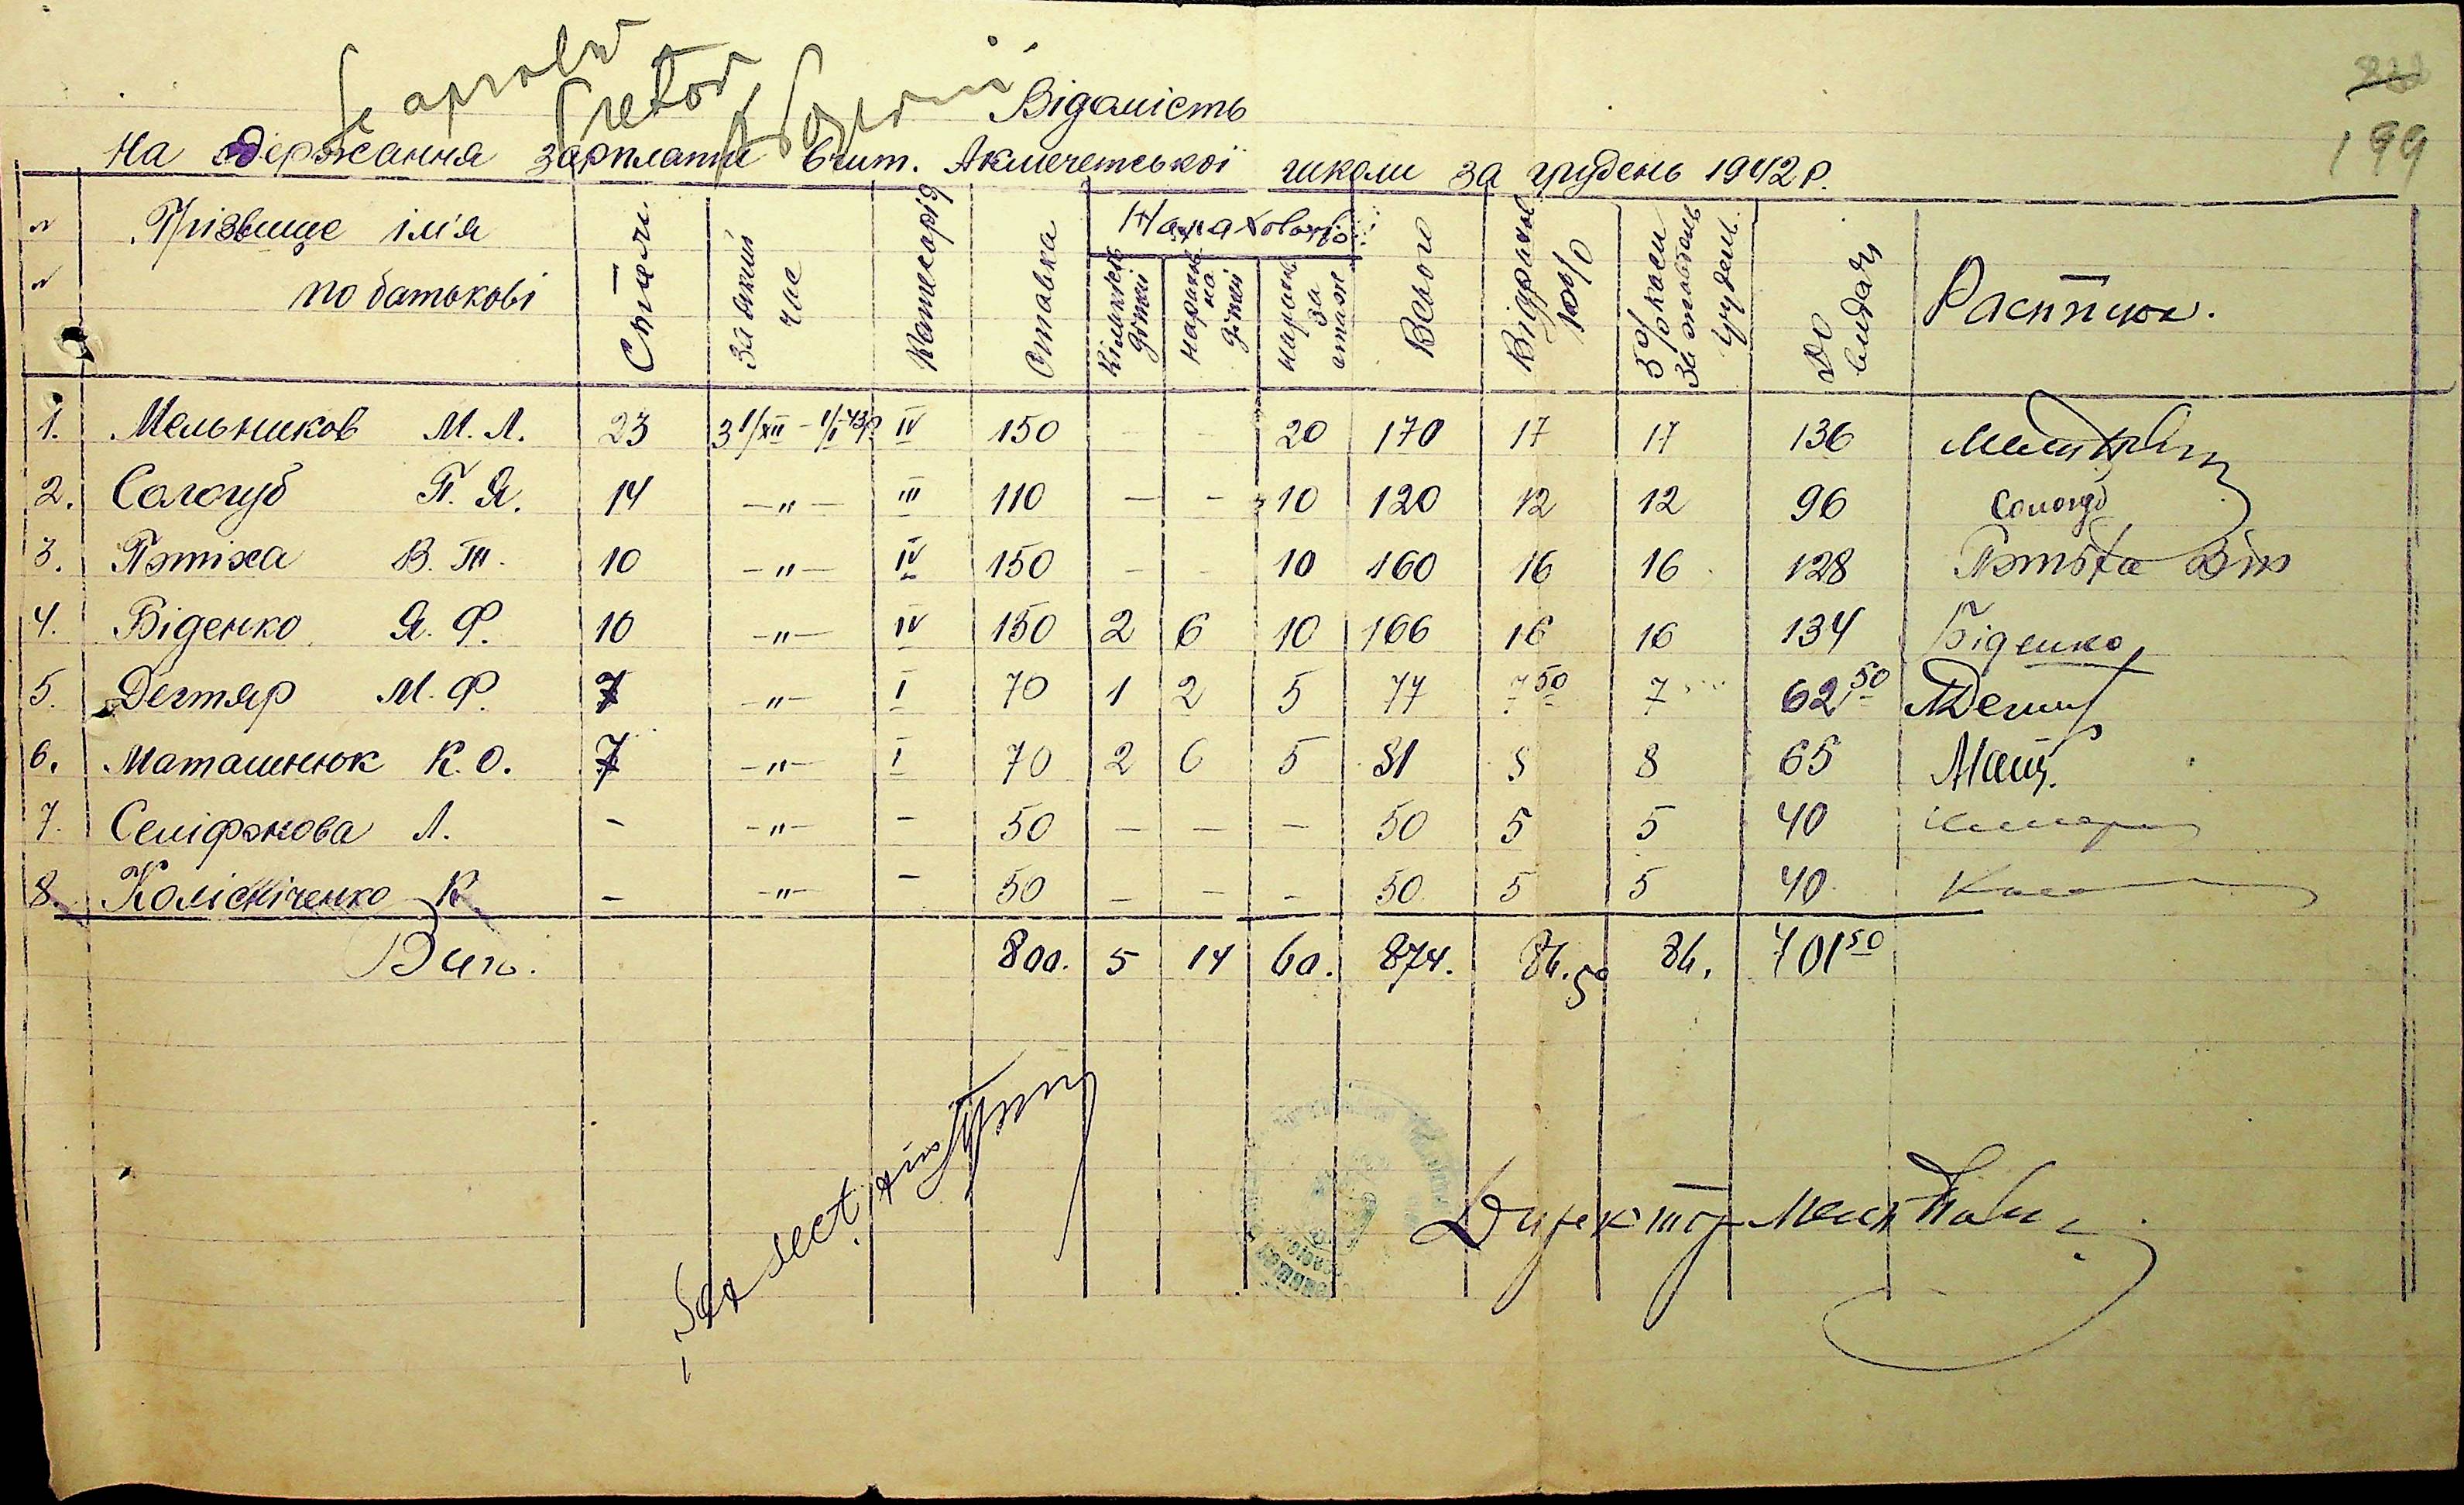 Se aprobă
Pretor
Відамість
199
На одержання зарплати вчит. Акмечетської школи за грудень 1942 р.
Прізвище ім'я по батькові Стаж За який час Категорія Ставка Нараховано Кількість дітей на дітей за стаж Всього 10% 5% До видачі
1. Мельников М. Л. 23 З 1/XII – 1/I-43р. IV 150 – – 20 170 17 17 136
2. Сологуб П. Я. 14 –"– III 110 – – 10 120 12 12 96 Сологуб
3. Пэтіха В. Т. 10 –"– IV 150 – – 10 160 16 16 128 Пэтіха
4. Біденко Я. Ф. 10 –"– IV 150 2 6 10 166 16 16 134 Біденко
5. Дегтяр М. Ф. 7 –"– I 70 1 2 5 77 7 50 7 62 50
6. Маташнюк К. О. 7 –"– I 70 2 6 5 81 8 8 65
7. Селіфонова Л. – –"– – 50 – – – 50 5 5 40
8. Колісніченко К. – –"– – 50 – – – 50 5 5 40
800. 5 14 60. 874. 86.50 86. 701 50
Директор